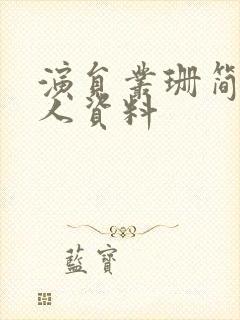 演員業珊簡
人資料
藍寶